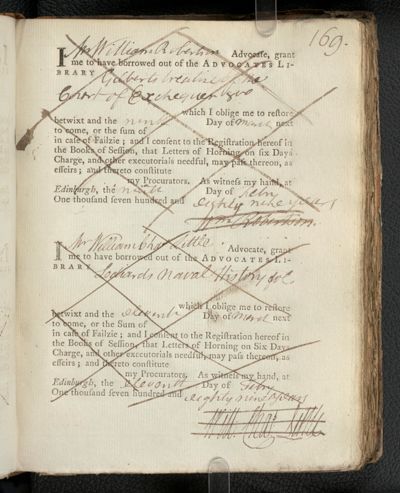 169.
I Mr William Robertson Advocate, grant
me to have borrowed out of the ADVOCATES LI-
BRARY Gilberts treatise of the
Court of Exchequer 8vo
which I oblige me to restore
betwixt and the ninth Day of March next
to come, or the sum of
in case of Failzie; and I consent to the Registration hereof in
the Books of Session, that Letters of Horning on six Days
Charge, and other executorials needful, may pass thereon, as
effeirs; and thereto constitute
my Procurators. As witness my hand, at
Edinburgh, the ninth Day of Febry
One thousand seven hundred and eighty nine years
Wm. Robertson.
I Mr William Chas Little Advocate, grant
me to have borrowed out of the ADVOCATES LI-
BRARY Naval History fol
which I oblige me to restore
betwixt and the eleventh Day of March next
to come, or the Sum of
in case of Failzie; and I consent to the Registration hereof in
the Books of Session, that Letters of Horning on Six Days
Charge, and other executorials needful, may pass thereon, as
effeirs; and thereto constitute
my Procurators. As witness my hand, at
Edinburgh, the eleventh Day of Febry
One thousand seven hundred and eighty nine years
Will. Chas Little